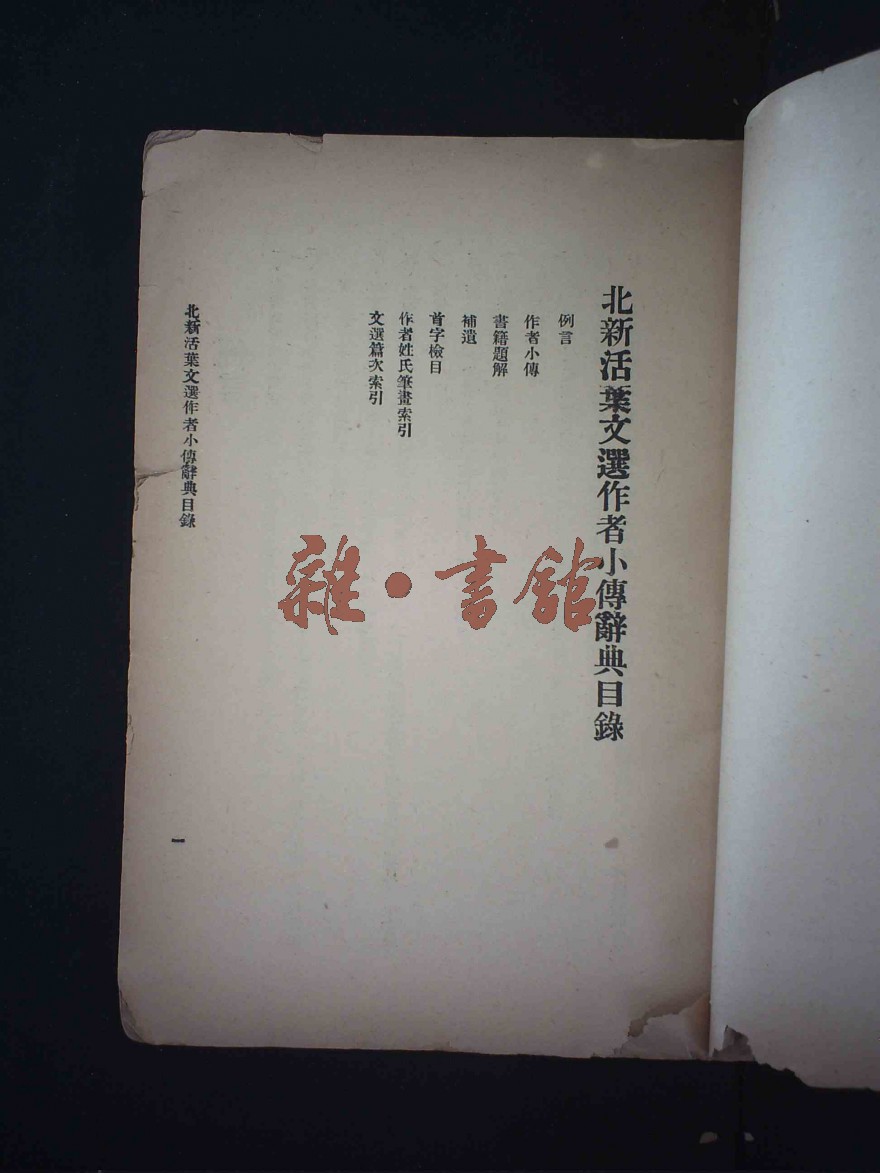 北新活葉文選作者小傳辭典目錄
例言
作者小傳
書籍題解
補遺
首字檢目
作者姓氏筆畫索引
文選篇次索引
北新活葉文選作者小傳辭典目錄
一
雜·書館